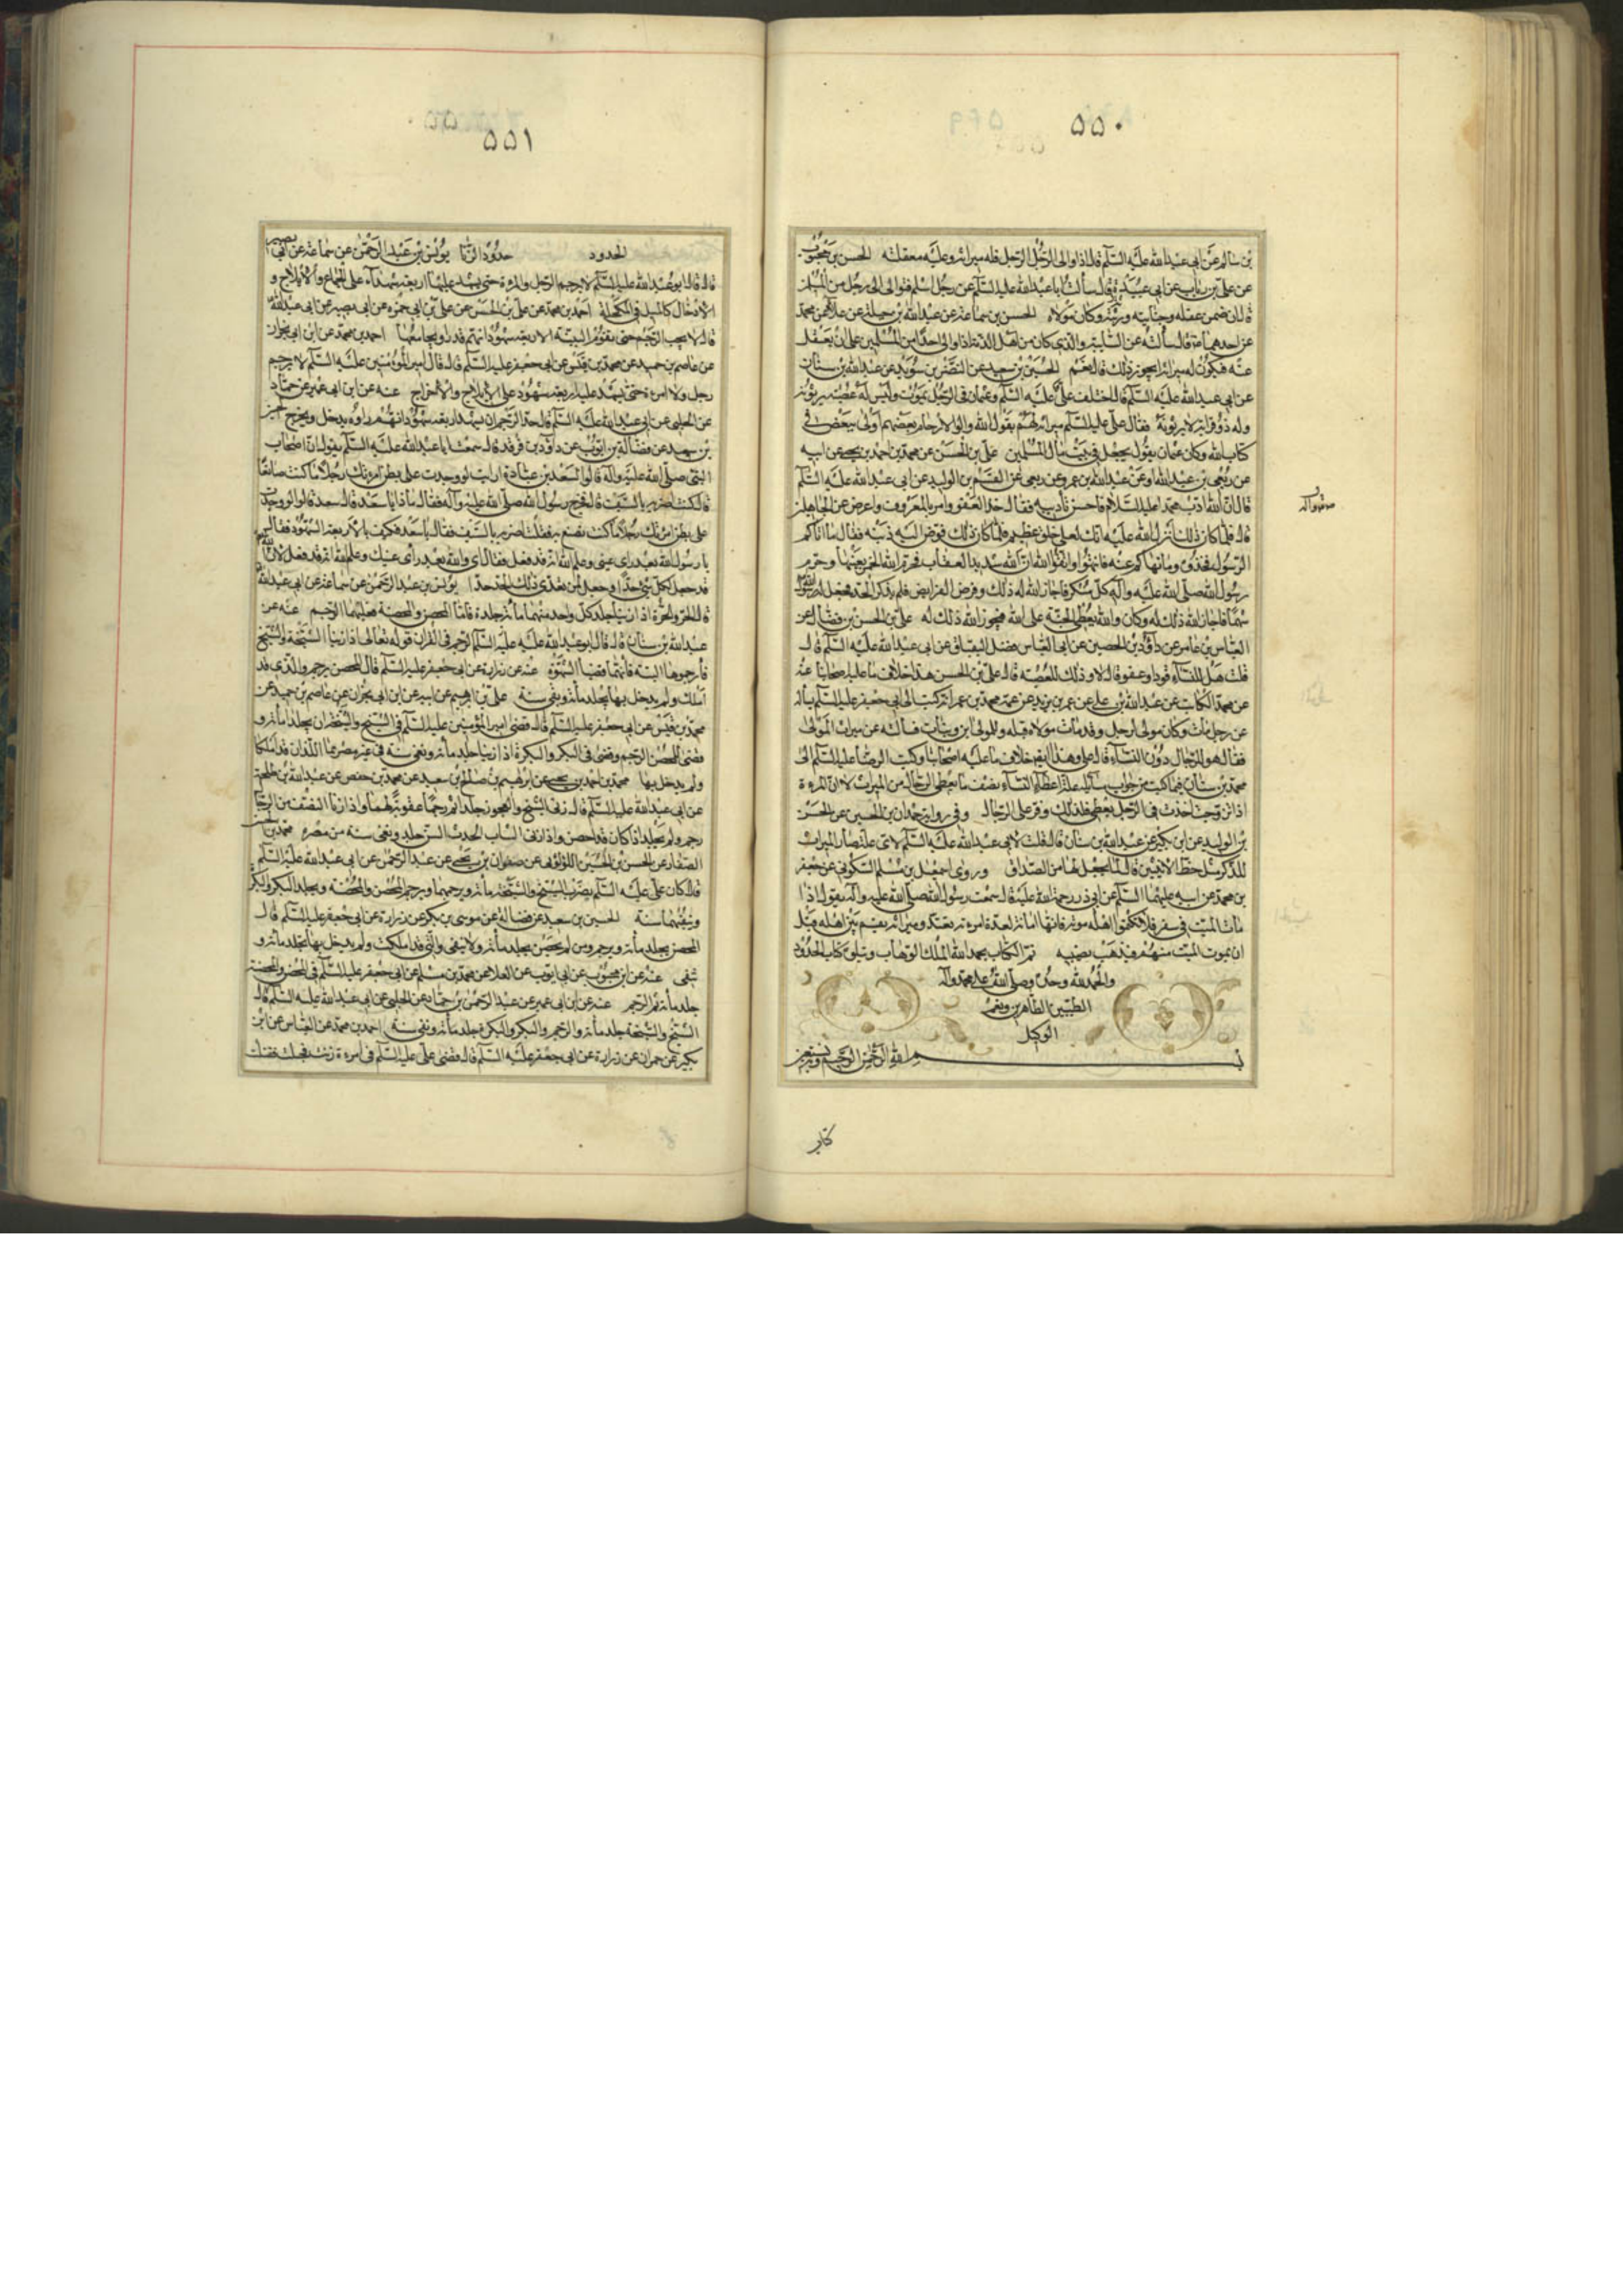 ٥٥٠
بن سالم عن ابى عبد الله عليه السلم قال اذا والى الرجل الرجل فله ميراثه وعليه معقلته الحسن بن محبوب
عن على بن رئاب عن ابى عبيدة قال سألت ابا عبد الله عليه السلم عن رجل اسلم فتوالى الى رجل من المسلمين
قال ان ضمن عقله وجنايته ورثه وكان مولاه الحسن بن سماعة عن عبد الله بن جبلة عن علا عن محمد
عن احدهما قال سألته عن السائبة والذى كان من اهل الذمة اذا والى احدا من المسلمين على ان يعقل
عنه فيكون له ميراثه ايجوز ذلك قال نعم الحسين بن سعيد عن النضر بن سويد عن عبد الله بن سنان
عن ابى عبد الله عليه السلم قال اختلف على عليه السلم وعثمان فى الرجل يموت وليس له عصبة يرثونه
وله ذو قرابة لا يرثونه فقال على عليه السلم ميراثه لهم بقول الله واولوا الارحام بعضهم اولى ببعض فى
كتاب الله وكان عثمان يقول يجعل فى بيت مال المسلمين على بن الحسن عن محمد بن احمد بن يحيى عن ابيه
عن ربعى بن عبد الله او عن عبد الله بن عمرو عن ربعى عن القسم بن الوليد عن ابى عبد الله عليه السلم
قال ان الله ادب محمدا عليه السلام فاحسن تأديبه فقال خذ العفو وامر بالمعروف واعرض عن الجاهلين
قال فلما كان ذلك انزل الله عليه انك لعلى خلق عظيم فلما كان ذلك فوض اليه دينه فقال ما اتاكم
الرسول فخذوه وما نهاكم عنه فانتهوا واتقوا الله ان الله شديد العقاب فحرم الله الخمر بعينها وحرم
رسول الله صلى الله عليه وآله كل مسكر فاجاز الله له ذلك وفرض الفرايض فلم يذكر الجد فجعل له رسول الله
سهما فاجاز الله ذلك له وكان والله يعطى الجنة على الله فيجوز الله ذلك له على بن الحسن بن فضال عن
العباس بن عامر عن داود بن الحصين عن ابى العباس فضل البقباق عن ابى عبد الله عليه السلم قال
قلت هل للنساء قود او عفو قال لا وذلك للعصبة قال على بن الحسن هذا خلاف ما عليه اصحابنا عنه
عن محمد الكاتب عن عبد الله بن على عن عمر بن يزيد عن عمه محمد بن عمر انه كتب الى ابى جعفر عليه السلم يسأله
عن رجل مات وكان مولى لرجل وقد مات مولاه قبله وللمولى ابن وبنات فسأله عن ميراث المولى
فقال هو للرجال دون النساء قال على وهذا ايضا خلاف ما عليه اصحابنا وكتب الرضا عليه السلم الى
محمد بن سنان فيما كتب من جواب مسايله علة اعطاء النساء نصف ما يعطى الرجال من الميراث لان المرءة
اذا تزوجت اخذت فى الرجل يعطى فلذلك وفر على الرجال وفى رواية حمدان بن الحسين عن الحسن
بن الوليد عن ابن بكير عن عبد الله بن سنان قال قلت لابى عبد الله عليه السلم لاى علة صار الميراث
للذكر مثل حظ الانثيين قال لما يجعل لها من الصداق وروى اسمعيل بن مسلم السكونى عن جعفر
بن محمد عن ابيه عليهما السلم عن ابى ذر رحمة الله عليه قال سمعت رسول الله صلى الله عليه وآله يقول اذا
مات الميت فى سفر فلا تكتموا اهله موته فانها امانة لعدة امرءته تعتد وميراثه يقسم بين اهله قبل
ان يموت الميت منهم فيذهب نصيبه تم الكتاب بحمد الله الملك الوهاب ويتلوه كتاب الحدود
والحمد لله وحده وصلى الله على محمد وآله
الطيبين الطاهرين ونعم
الوكيل
بسم الله الرحمن الرحيم وبه نستعين
كتاب
٥٥١
الحدود حدود الزنا يونس بن عبد الرحمن عن سماعة عن ابى بصير
قال قال ابو عبد الله عليه السلم لا يرجم الرجل والمرءة حتى يشهد عليهما اربعة شهداء على الجماع والايلاج و
الادخال كالميل فى المكحلة احمد بن محمد عن على بن الحسن عن على بن ابى حمزه عن ابى بصير عن ابى عبد الله
قال لا يجب الرجم حتى يقوم البينة الاربعة شهود انهم قد راوه يجامعها احمد بن محمد عن ابن ابى نجران
عن عاصم بن حميد عن محمد بن قيس عن ابى جعفر عليه السلم قال قال امير المؤمنين عليه السلم لا يرجم
رجل ولا امرءة حتى يشهد عليه اربعة شهود على الايلاج والاخراج عنه عن ابن ابى عمير عن حماد
عن الحلبى عن ابى عبد الله عليه السلم قال حد الرجم ان يشهد اربعة شهود انهم راوه يدخل ويخرج الحسين
بن سعيد عن فضالة بن ايوب عن داود بن فرقد قال سمعت ابا عبد الله عليه السلم يقول ان اصحاب
النبى صلى الله عليه وآله قالوا لسعد بن عبادة ارايت لو وجدت على بطن امرءتك رجلا ما كنت صانعا
قال كنت اضربه بالسيف قال فخرج رسول الله صلى الله عليه وآله فقال ماذا يا سعد قال سعد قالوا لو وجدت
على بطن امرءتك رجلا ما كنت تصنع به فقلت اضربه بالسيف فقال يا سعد فكيف بالاربعة الشهود فقال
يا رسول الله بعد راى عينى وعلم الله انه قد فعل فقال اى والله بعد راى عينك وعلم الله انه قد فعل لان الله
قد جعل لكل شىء حدا وجعل لمن تعدى ذلك الحد حدا يونس بن عبد الرحمن عن سماعة عن ابى عبد الله
قال الحر والحرة اذا زنيا جلد كل واحد منهما مائة جلدة فاما المحصن والمحصنة فعليهما الرجم عنه عن
عبد الله بن سنان قال قال ابو عبد الله عليه السلم الرجم فى القران قوله تعالى اذا زنيا الشيخة والشيخ
فارجموها البتة فانهما قضيا الشهوة عنه عن زرارة عن ابى جعفر عليه السلم قال المحصن يرجم والذى قد
املك ولم يدخل بها يجلد مائة ونفى سنة على بن ابرهيم عن ابيه عن ابن ابى نجران عن عاصم بن حميد عن
محمد بن قيس عن ابى جعفر عليه السلم قال قضى امير المؤمنين عليه السلم فى الشيخ والشيخة ان يجلدا مائة و
قضى للمحصن الرجم وقضى فى البكر والبكرة اذا زنيا جلد مائة ونفى سنة فى غير مصرهما اللذان قد املكا
ولم يدخل بها محمد بن احمد بن يحيى عن ابرهيم بن صالح بن سعيد عن محمد بن حفص عن عبد الله بن طلحة
عن ابى عبد الله عليه السلم قال زنى الشيخ والعجوز جلدا ثم رجما عقوبة لهما واذا زنا النصف من الرجال
رجم ولم يجلد اذا كان قد احصن واذا زنى الشاب الحدث السن جلد ونفى سنة من مصره محمد بن الحسن
الصفار عن الحسن بن الحسين اللؤلؤى عن صفوان بن يحيى عن عبد الرحمن عن ابى عبد الله عليه السلم
قال كان على عليه السلم يضرب الشيخ والشيخة مائة ويرجمهما ويرجم المحصن والمحصنة ويجلد البكر والبكرة
وينفيهما سنة الحسين بن سعيد عن فضالة عن موسى بن بكر عن زرارة عن ابى جعفر عليه السلم قال
المحصن يجلد مائة ويرجم ومن لم يحصن يجلد مائة ولا ينفى والتى قد املكت ولم يدخل بها تجلد مائة و
تنفى عنه عن ابن محبوب عن ابى ايوب عن العلا عن محمد بن مسلم عن ابى جعفر عليه السلم فى المحصن والمحصنة
جلد مائة ثم الرجم عنه عن ابن ابى عمير عن عبد الرحمن بن حماد عن الحلبى عن ابى عبد الله عليه السلم قال
الشيخ والشيخة جلد مائة والرجم والبكر والبكرة جلد مائة ونفى سنة احمد بن محمد عن العباس عن ابن
بكير عن حمران عن زرارة عن ابى جعفر عليه السلم قال قضى على عليه السلم فى امرءة زنت فحبلت فقتلت